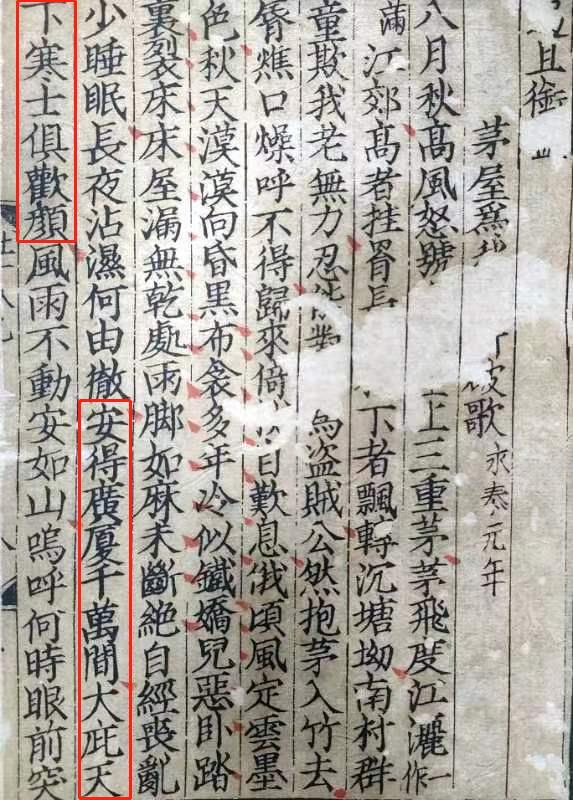 且銜
茅屋爲 歌永泰元年
八月秋高風怒號 上三重茅茅飛度江灑一作
滿江郊高者挂罥長 下者飄轉沉塘坳南村群
童欺我老無力忍能對 為盜賊公然抱茅入竹去
脣燋口燥呼不得歸來倚 自歎息俄頃風定雲墨
色秋天漠漠向昏黑布衾多年冷似鐵嬌兒惡卧踏
裏裂床床屋漏無乾處雨脚如麻未斷絕自經喪亂
少睡眠長夜沾濕何由徹安得廣厦千萬間大庇天
下寒士俱歡顏風雨不動安如山嗚呼何時眼前突